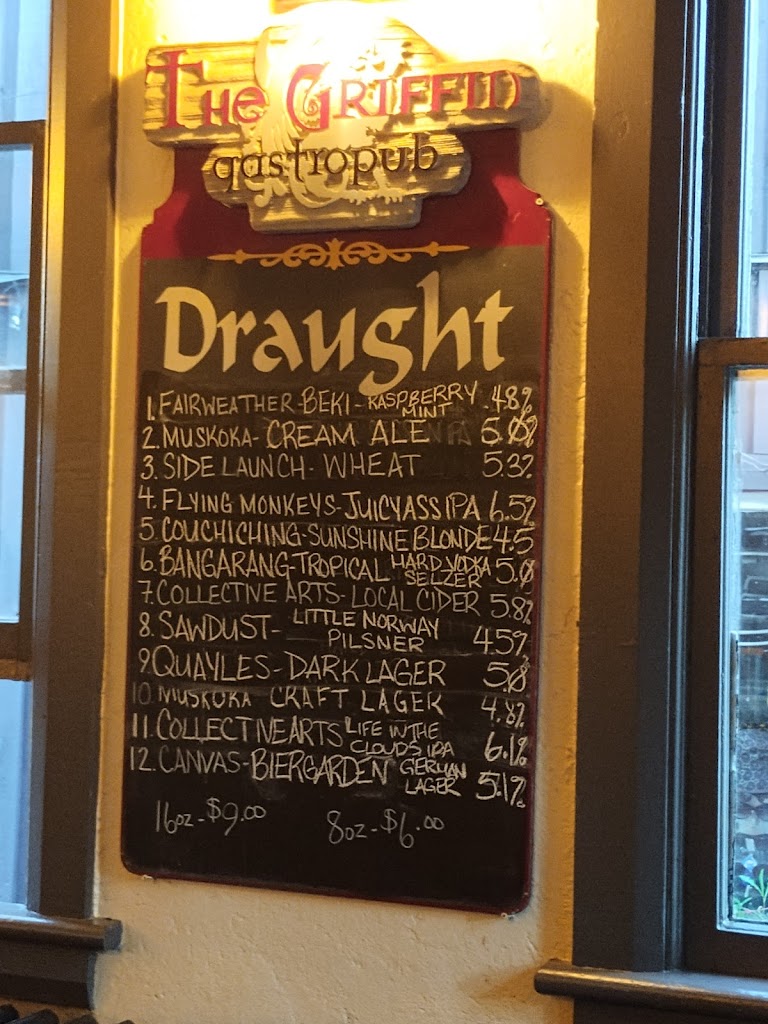 The Griffin
gastropub
Draught
1. FAIRWEATHER-BEKI-RASPBERRY MINT 4.8%
2. MUSKOKA-CREAM ALE 5.0%
3. SIDE LAUNCH-WHEAT 5.3%
4. FLYING MONKEYS-JUICYASS IPA 6.5%
5. COUCHICHING-SUNSHINE BLONDE 4.5
6. BANGARANG-TROPICAL HARD VODKA SELZER 5.0
7. COLLECTIVE ARTS-LOCAL CIDER 5.8%
8. SAWDUST-LITTLE NORWAY PILSNER 4.5%
9. QUAYLES-DARK LAGER 5.0%
10. MUSKOKA CRAFT LAGER 4.8%
11. COLLECTIVE ARTS LIFE IN THE CLOUDS IPA 6.1%
12. CANVAS-BIERGARDEN GERMAN LAGER 5.1%
16oz-$9.00 8oz-$6.00